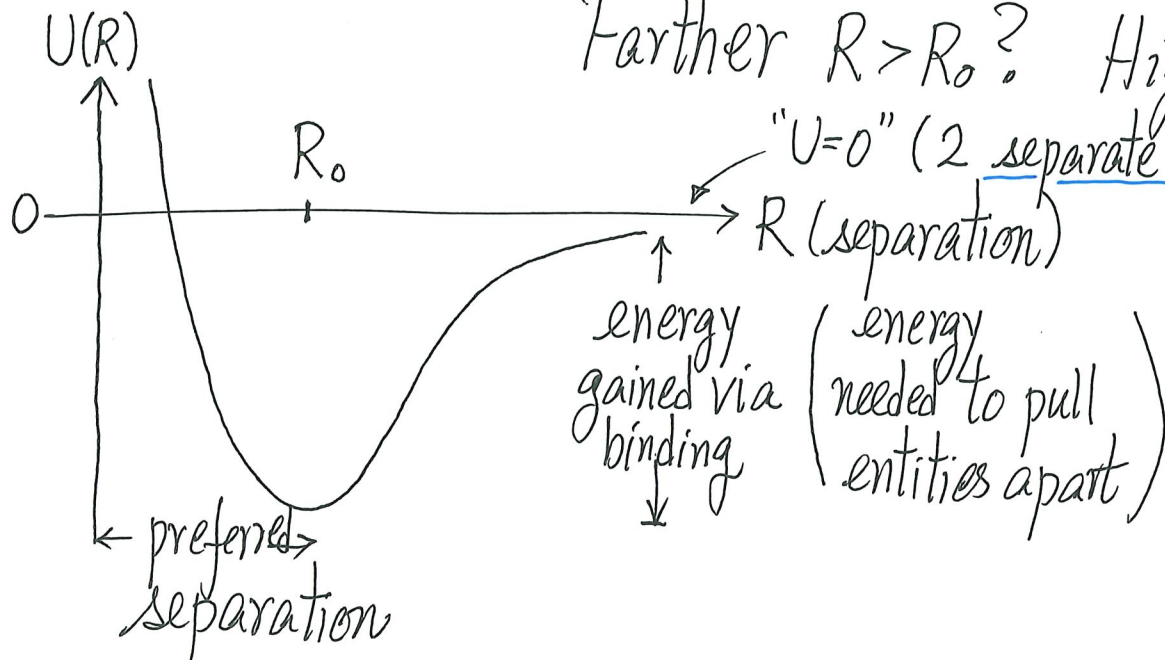 U(R)
Farther R > R₀?
"U=0" (2 separate
R₀
0
R (separation)
energy
gained via
binding
(energy
needed to pull
entities apart)
preferred
separation